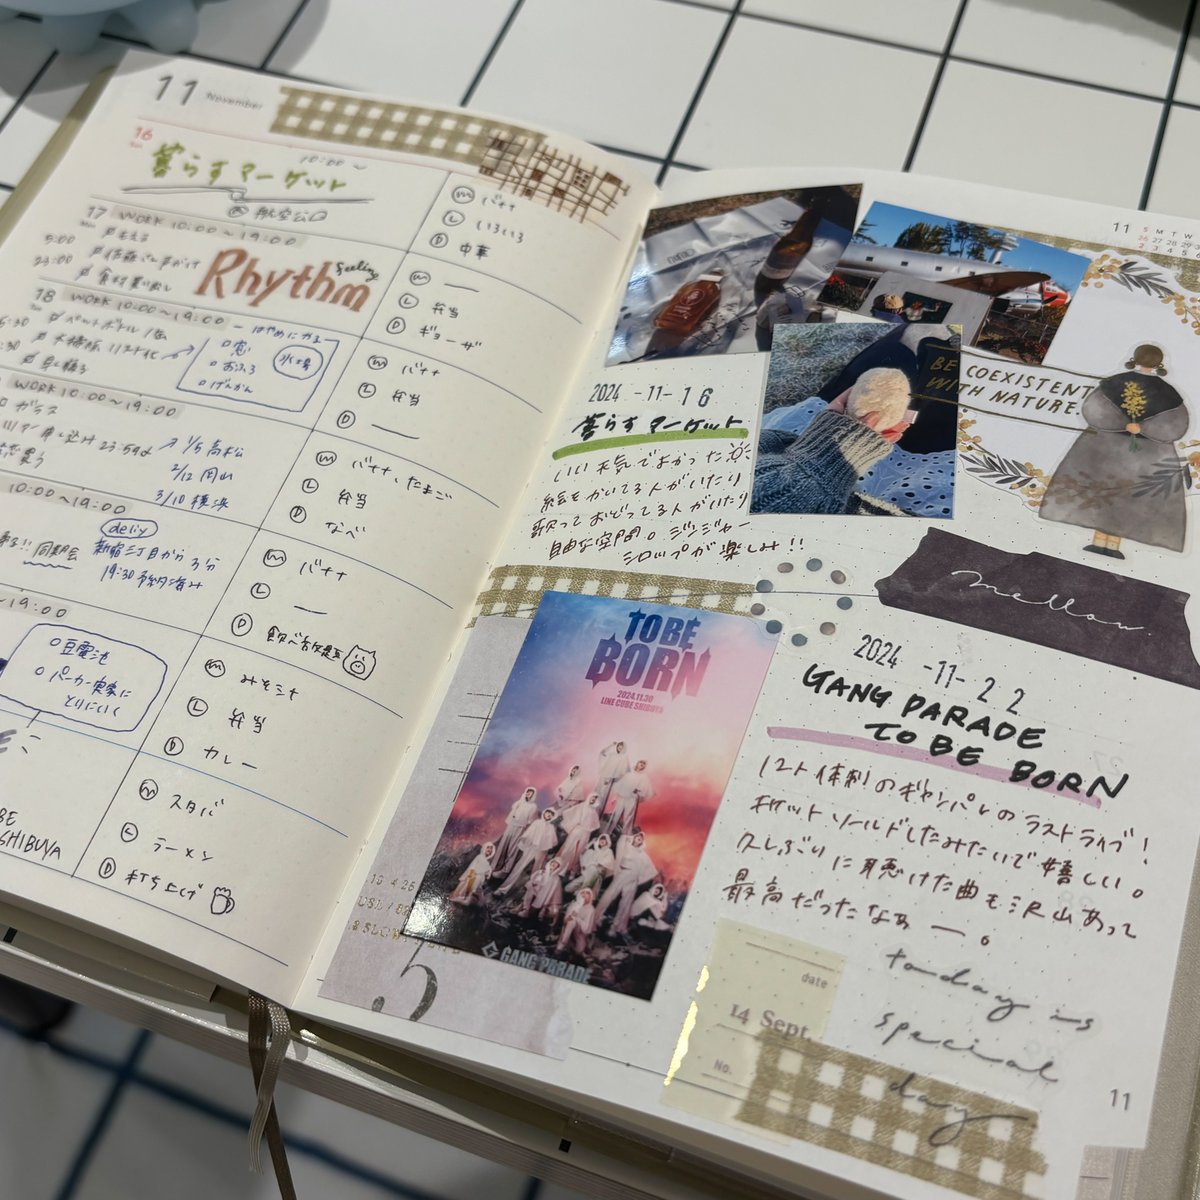 11 November
16
Sun
10:00~
暮らすマーケット
@ 航空公園
17 WORK 10:00~19:00
Mon
5:00
23:00
食材買い出し
Rhythm
feeling
18 WORK 10:00~19:00
大掃除リスト化
はやめにやる
窓
おふろ
げんかん
WORK 10:00~19:00
ガラス
23:59〆
1/5 高松
2/12 岡山
3/10 横浜
10:00~19:00
同期会
deliy
新宿三丁目から3分
19:30 予約済み
~19:00
豆電池
パーカー実家に
とりにいく
BE
SHIBUYA
M バナナ
L いろいろ
D 中華
M —
L 弁当
D ギョーザ
M バナナ
L 弁当
D —
M バナナ、たまご
L 弁当
D なべ
M バナナ
L —
D 飲べ放題
M みそシナ
L 弁当
D カレー
M スタバ
L ラーメン
D 打ち上げ
11
S M T W
26 27 28 29
2 3 4 5
BE COEXISTENT
WITH NATURE.
2024 -11- 16
暮らすマーケット
いい天気でよかった
絵をかいてる人がいたり
歌っておどってる人がいたり
自由な空間。ジンジャー
シロップが楽しみ!!
mellow.
TO BE
BORN
2024.11.30
LINE CUBE SHIBUYA
GANG PARADE
5
2024 -11- 22
GANG PARADE
TO BE BORN
12人体制のギャンパレのラストライブ!
チケットソールドしたみたいで嬉しい。
久しぶりに聴けた曲も沢山あって
最高だったなぁー。
today is
special
day
date
14 Sept.
No.
11